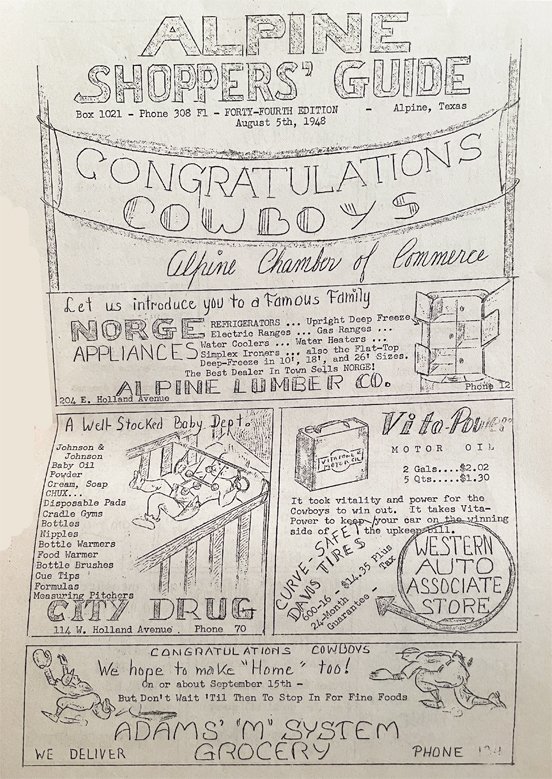 ALPINE
SHOPPERS' GUIDE
Box 1021 - Phone 308 F1 - FORTY-FOURTH EDITION - Alpine, Texas
August 5th, 1948
CONGRATULATIONS
COWBOYS
Alpine Chamber of Commerce
Let us introduce you to a Famous Family
NORGE
APPLIANCES
REFRIGERATORS ... Upright Deep Freeze
Electric Ranges ... Gas Ranges ...
Water Coolers ... Water Heaters ...
Simplex Ironers ... also the Flat-Top
Deep-Freeze in 10', 18', and 26' Sizes.
The Best Dealer In Town Sells NORGE!
ALPINE LUMBER CO.
204 E. Holland Avenue
Phone 12
A Well Stocked Baby Dept.
Johnson &
Johnson
Baby Oil
Powder
Cream, Soap
CHUX...
Disposable Pads
Cradle Gyms
Bottles
Nipples
Bottle Warmers
Food Warmer
Bottle Brushes
Cue Tips
Formulas
Measuring Pitchers
CITY DRUG
114 W. Holland Avenue Phone 70
MOTOR OIL
MOTOR OIL
2 Gals....$2.02
5 Qts....$1.30
It took vitality and power for the
Cowboys to win out. It takes Vita-
Power to keep your car on the winning
side of the upkeep bill.
CURVE SAFETY
DAVIS TIRES
600-16 - $14.35 Plus
Tax
24-Month
Guarantee -
WESTERN
AUTO
ASSOCIATE
STORE
CONGRATULATIONS COWBOYS
We hope to make "Home" too!
On or about September 15th -
But Don't Wait 'Til Then To Stop In For Fine Foods
ADAMS' "M" SYSTEM
GROCERY
WE DELIVER
PHONE